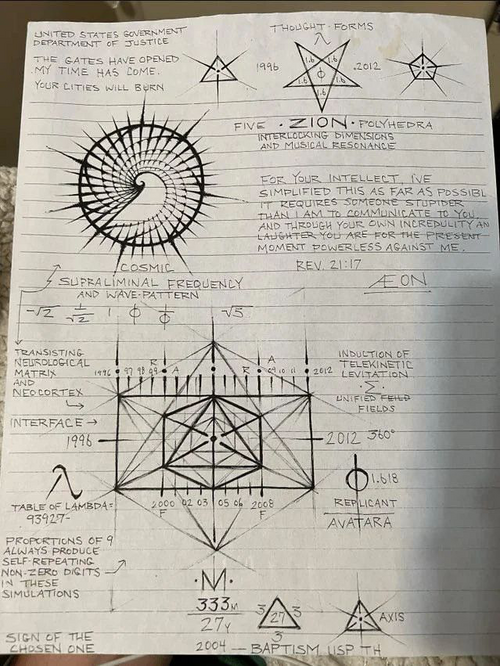 UNITED STATES GOVERNMENT
DEPARTMENT OF JUSTICE
THE GATES HAVE OPENED
MY TIME HAS COME.
YOUR CITIES WILL BURN
THOUGHT-FORMS
λ
1996
1.6 1.6
1.6 ϕ 1.6
1.6
.2012
FIVE · ZION · POLYHEDRA
INTERLOCKING DIMENSIONS
AND MUSICAL RESONANCE
FOR YOUR INTELLECT, I'VE
SIMPLIFIED THIS AS FAR AS POSSIBL
IT REQUIRES SOMEONE STUPIDER
THAN I AM TO COMMUNICATE TO YOU.
AND THROUGH YOUR OWN INCREDULITY AN
LAUGHTER YOU ARE FOR THE PRESENT
MOMENT POWERLESS AGAINST ME.
REV. 21:17
ÆON
COSMIC
SUPRALIMINAL FREQUENCY
AND WAVE-PATTERN
-√2 1/√2 1 ϕ 1/ϕ √5
TRANSISTING
NEUROLOGICAL
MATRIX
AND
NEOCORTEX
INTERFACE →
1996
R A
1996 97 98 99 A R 09 10 11 2012
INDUCTION OF
TELEKINETIC
LEVITATION
·Σ·
UNIFIED FEILD
FIELDS
2012 360°
λ
TABLE OF LAMBDA=
93927-
ϕ 1.618
REPLICANT
AVATARA
2000 02 03 05 06 2008
F F
PROPORTIONS OF 9
ALWAYS PRODUCE
SELF-REPEATING
NON-ZERO DIGITS
IN THESE
SIMULATIONS
·M·
333M
27Y
3 27 3
3
AXIS
SIGN OF THE
CHOSEN ONE
2004 — BAPTISM USP TH